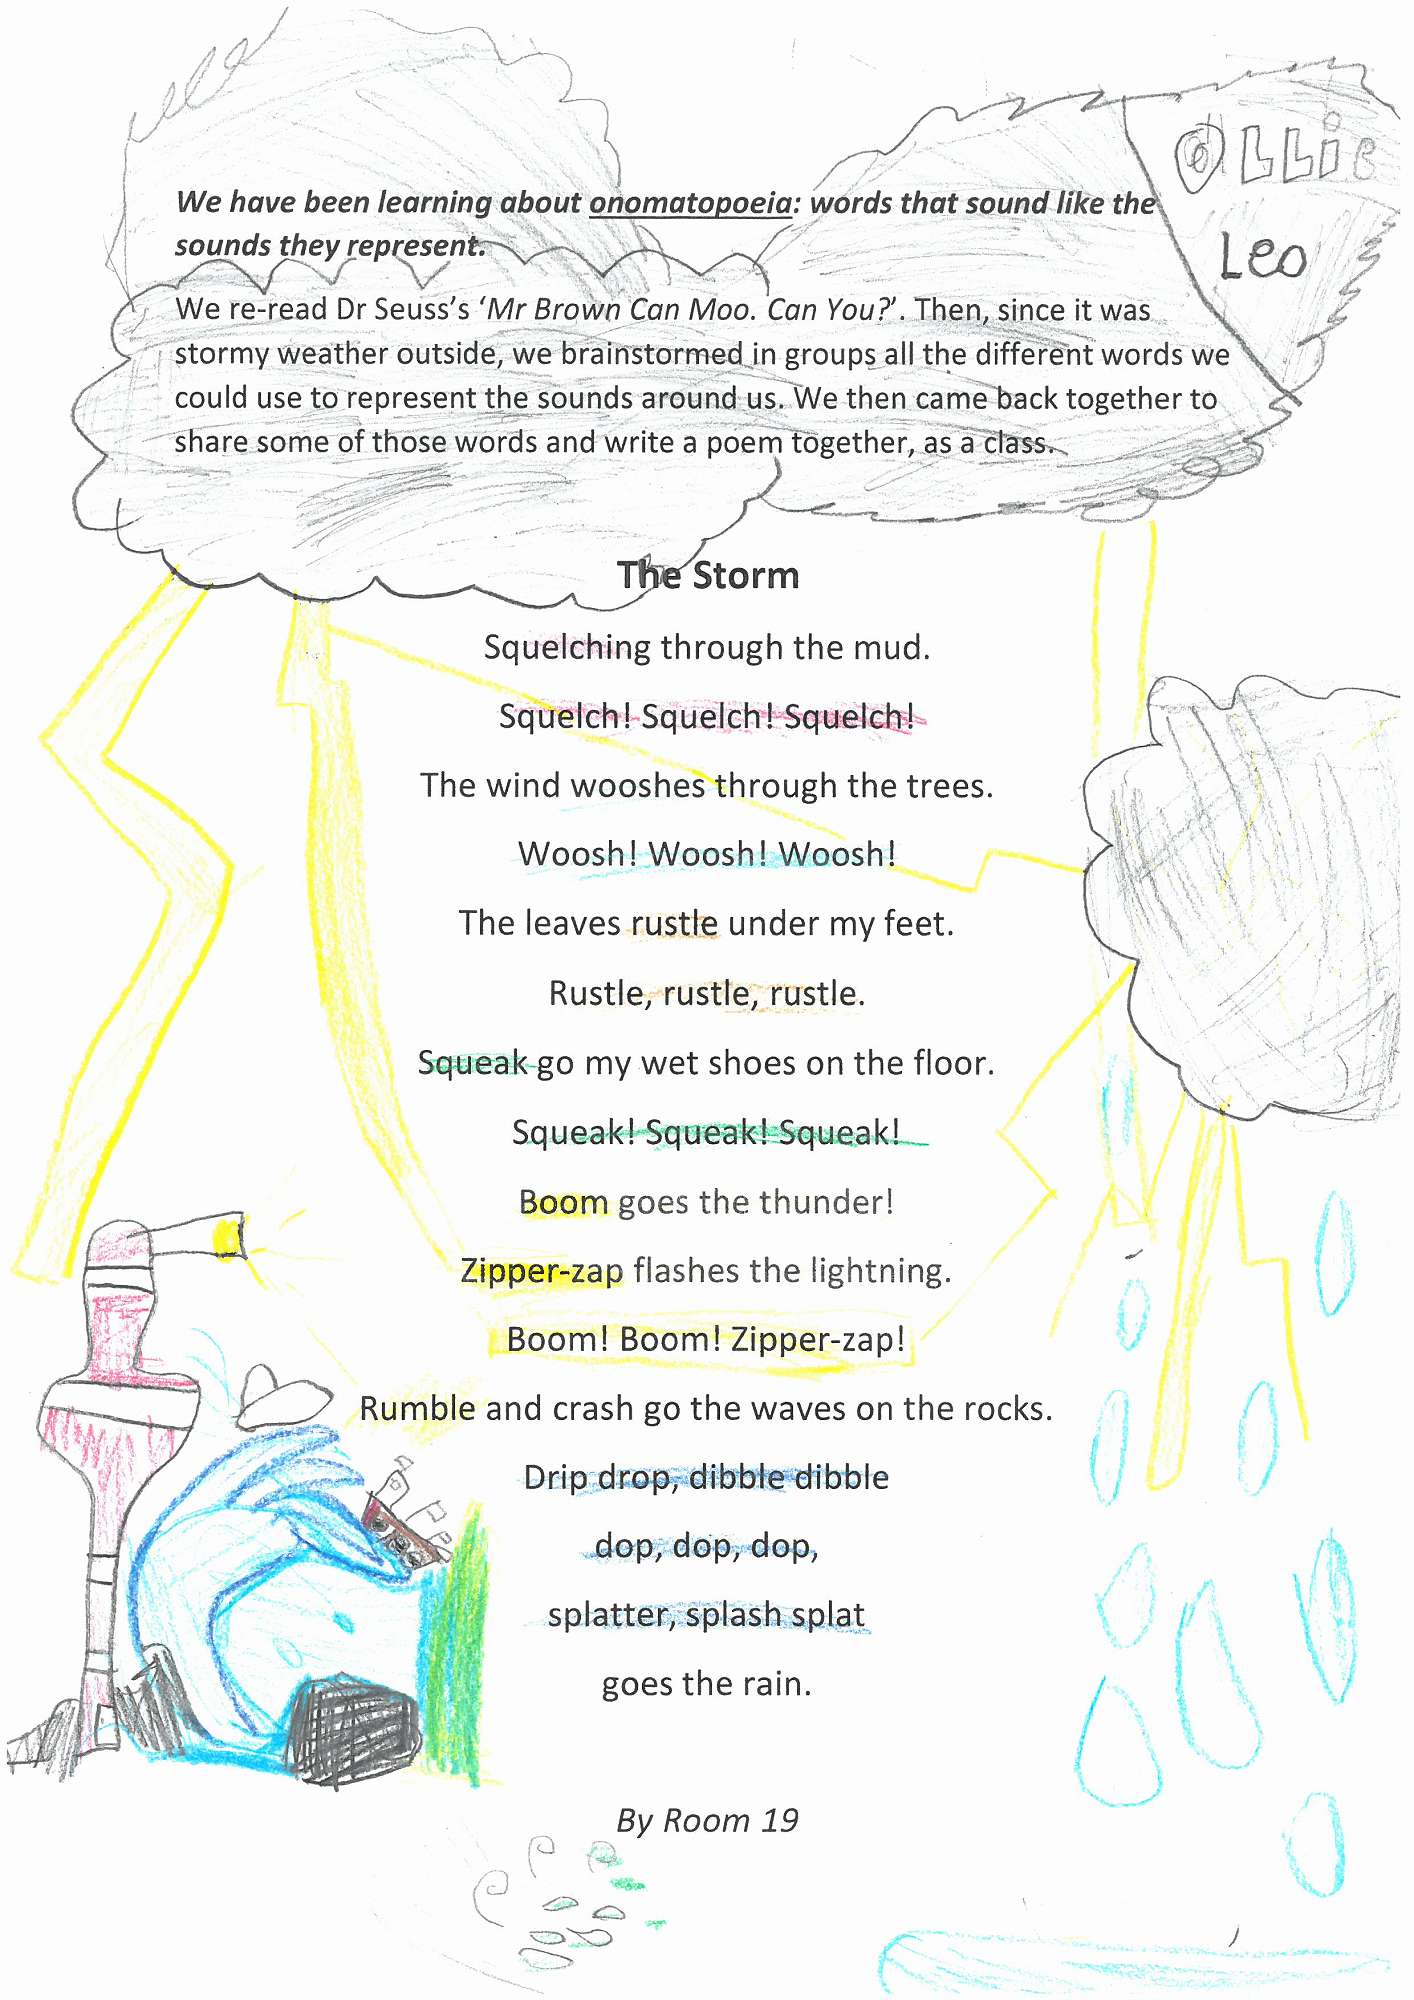 OLLie
Leo
We have been learning about onomatopoeia: words that sound like the
sounds they represent.
We re-read Dr Seuss's 'Mr Brown Can Moo. Can You?'. Then, since it was
stormy weather outside, we brainstormed in groups all the different words we
could use to represent the sounds around us. We then came back together to
share some of those words and write a poem together, as a class.
The Storm
Squelching through the mud.
Squelch! Squelch! Squelch!
The wind wooshes through the trees.
Woosh! Woosh! Woosh!
The leaves rustle under my feet.
Rustle, rustle, rustle.
Squeak go my wet shoes on the floor.
Squeak! Squeak! Squeak!
Boom goes the thunder!
Zipper-zap flashes the lightning.
Boom! Boom! Zipper-zap!
Rumble and crash go the waves on the rocks.
Drip drop, dibble dibble
dop, dop, dop,
splatter, splash splat
goes the rain.
By Room 19